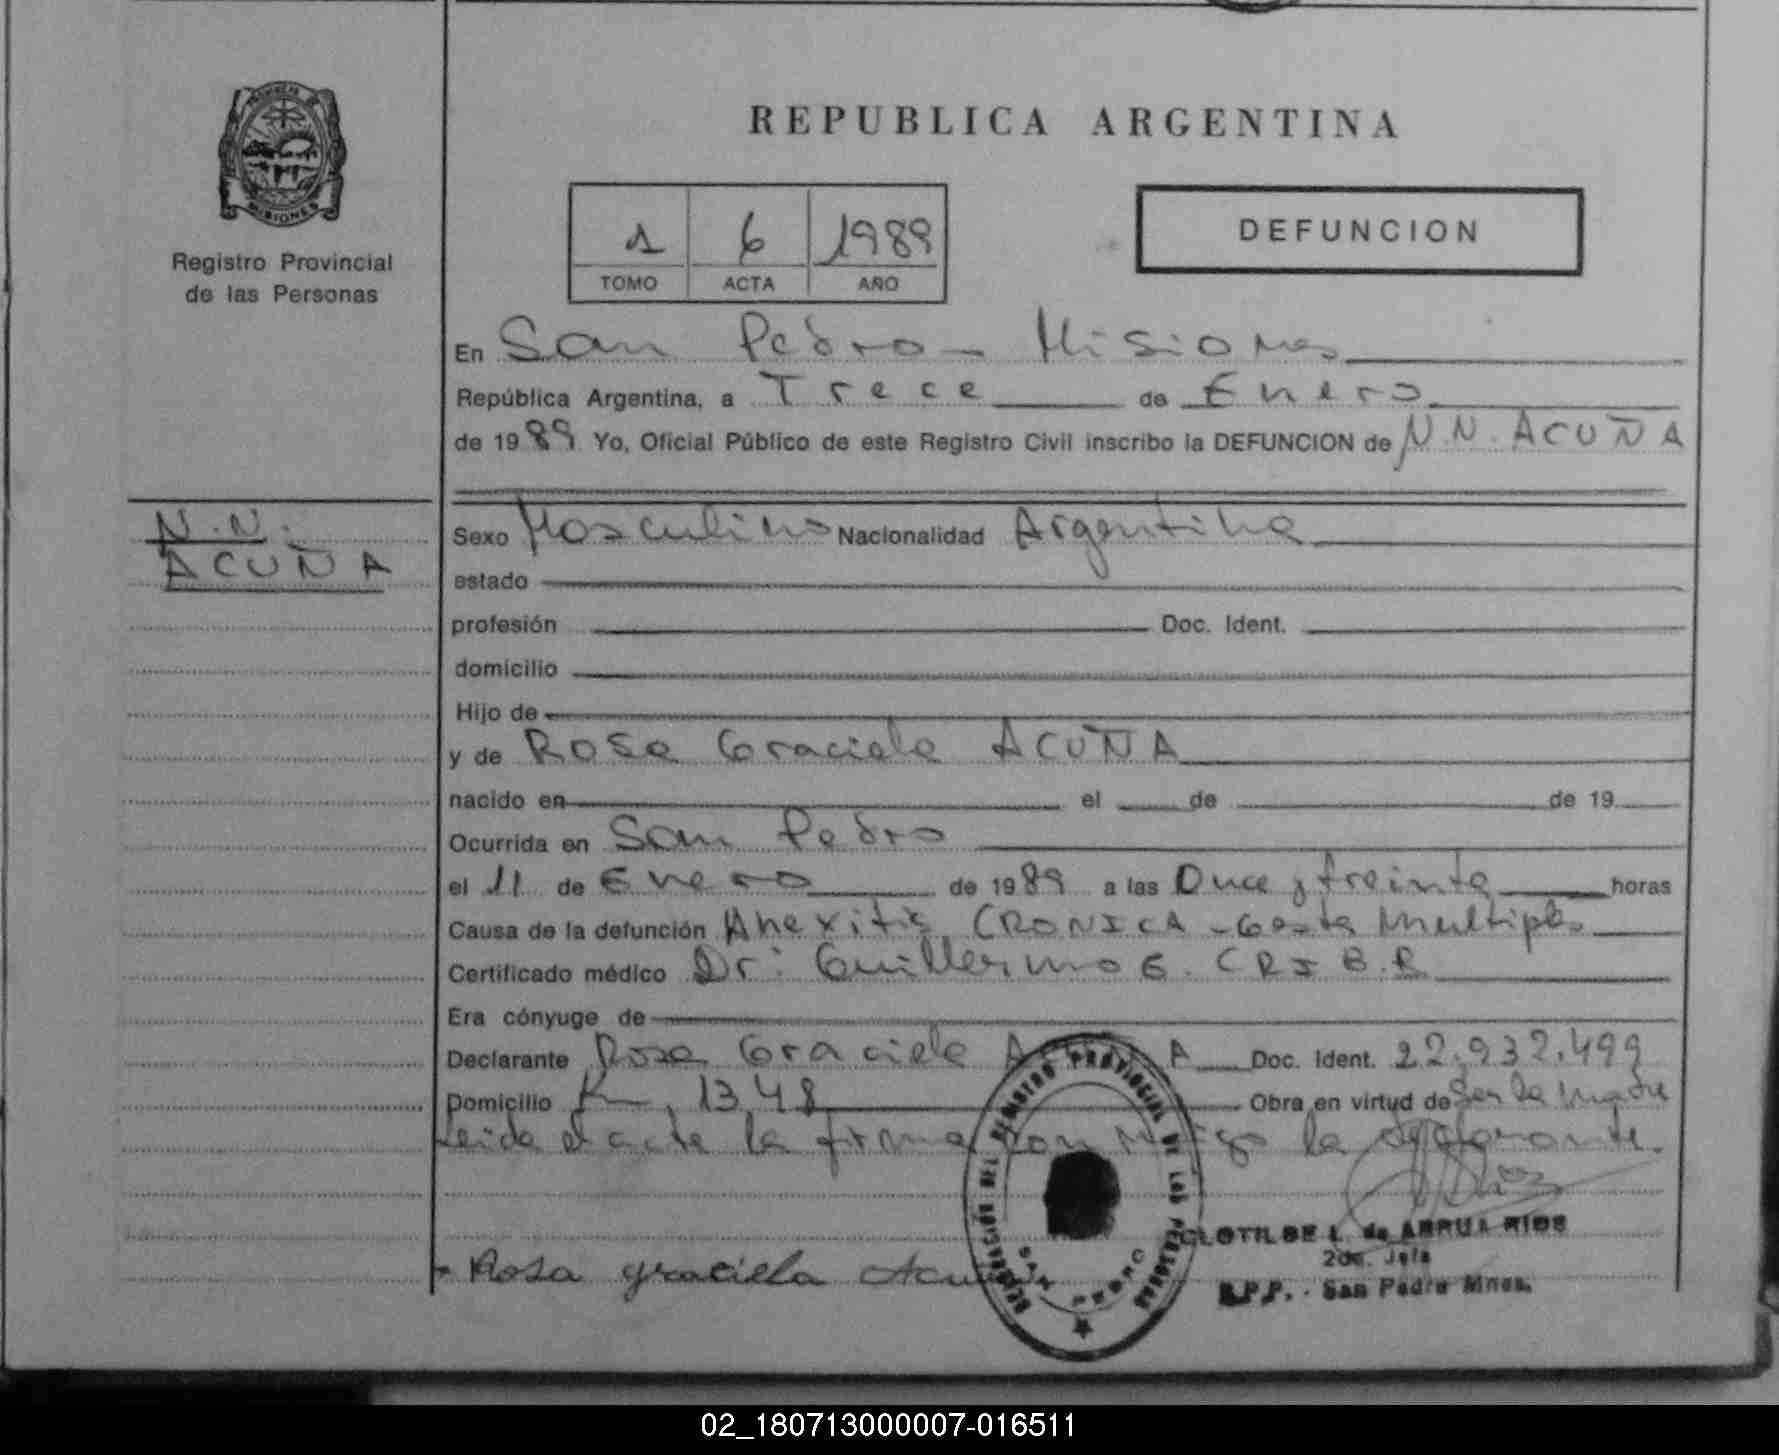 REPUBLICA ARGENTINA
PROVINCIA DE
MISIONES
Registro Provincial
de las Personas
1 6 1989
TOMO ACTA AÑO
DEFUNCION
En San Pedro - Misiones
República Argentina, a Trece de Enero
de 1989 Yo, Oficial Público de este Registro Civil inscribo la DEFUNCION de N.N. ACUÑA
N.N.
ACUÑA
Sexo Masculino Nacionalidad Argentina
estado
profesión Doc. Ident.
domicilio
Hijo de
y de Rosa Graciela ACUÑA
nacido en el de de 19
Ocurrida en San Pedro
el 11 de Enero de 1989 a las Once y treinta horas
Causa de la defunción Anexitis CRONICA - Gesta Multiple
Certificado médico Dr: Guillermo E.
Era cónyuge de
Declarante Rosa Graciela A A Doc. Ident. 22.932.499
Domicilio K, 1348 Obra en virtud de Ser la madre
Leida el acta la firma conmigo la declarante.
Rosa graciela Acu
DELEGACION DEL REGISTRO PROVINCIAL DE LAS PERSONAS
SAN PEDRO
CLOTILDE L. de ABRUA RIOS
2do. Jefe
R.P.P. - San Pedro Mnes.
02_180713000007-016511